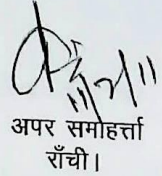 अपर समाहर्त्ता
राँची।